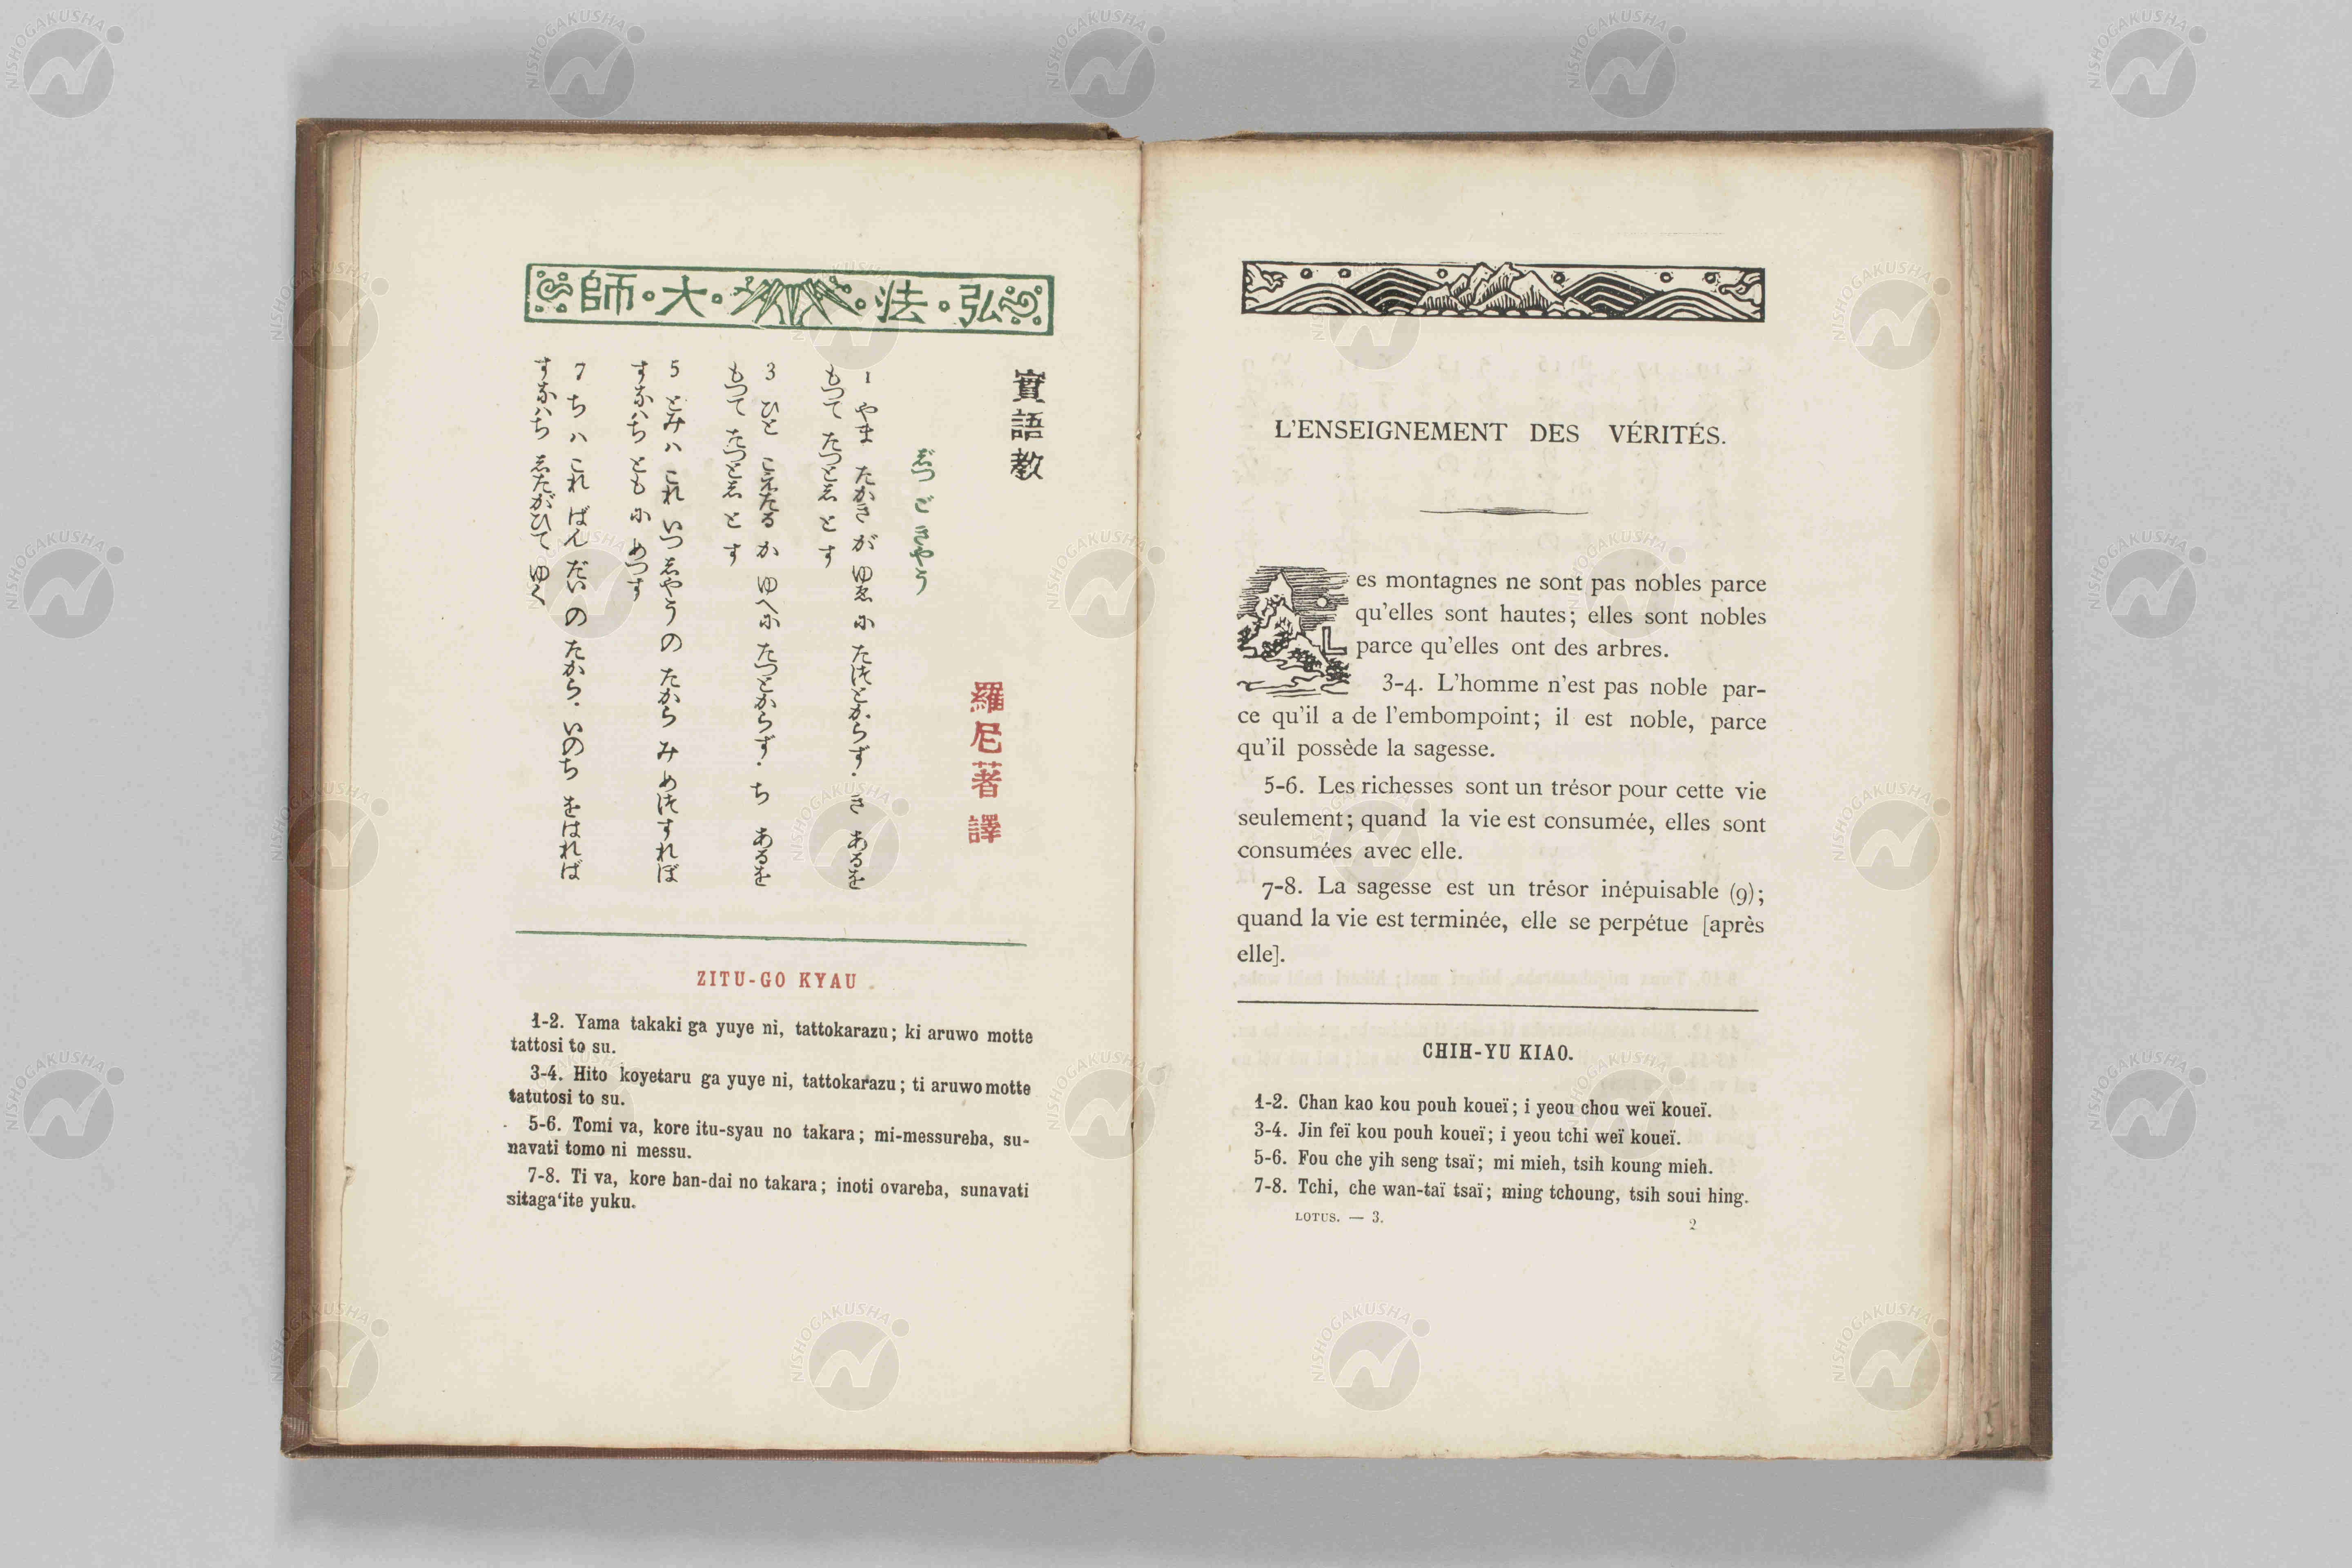 弘・法・大・師
實語教
羅尼著譯
じつ ご きやう
1 やま たかき が ゆゑ に たつとからず. き あるを
もつて たつとし と す
3 ひと こえたる か ゆへに たつとからず. ち あるを
もつて たつとし と す
5 とみ ハ これ いつしやう の たから み めつすれば
すなハち とも に めつす
7 ち ハ これ ばん だい の たから. いのち をはれば
すなハち したがひて ゆく
ZITU-GO KYAU
1-2. Yama takaki ga yuye ni, tattokarazu; ki aruwo motte
tattosi to su.
3-4. Hito koyetaru ga yuye ni, tattokarazu; ti aruwo motte
tatutosi to su.
5-6. Tomi va, kore itu-syau no takara; mi-messureba, su-
navati tomo ni messu.
7-8. Ti va, kore ban-dai no takara; inoti ovareba, sunavati
sitaga‘ite yuku.
L'ENSEIGNEMENT DES VÉRITÉS.
Les montagnes ne sont pas nobles parce
qu'elles sont hautes; elles sont nobles
parce qu'elles ont des arbres.
3-4. L'homme n'est pas noble par-
ce qu'il a de l'embompoint; il est noble, parce
qu'il possède la sagesse.
5-6. Les richesses sont un trésor pour cette vie
seulement; quand la vie est consumée, elles sont
consumées avec elle.
7-8. La sagesse est un trésor inépuisable (9);
quand la vie est terminée, elle se perpétue [après
elle].
CHIH-YU KIAO.
1-2. Chan kao kou pouh koueï; i yeou chou weï koueï.
3-4. Jin feï kou pouh koueï; i yeou tchi weï koueï.
5-6. Fou che yih seng tsaï; mi mieh, tsih koung mieh.
7-8. Tchi, che wan-taï tsaï; ming tchoung, tsih soui hing.
LOTUS. — 3. 2
NISHOGAKUSHA